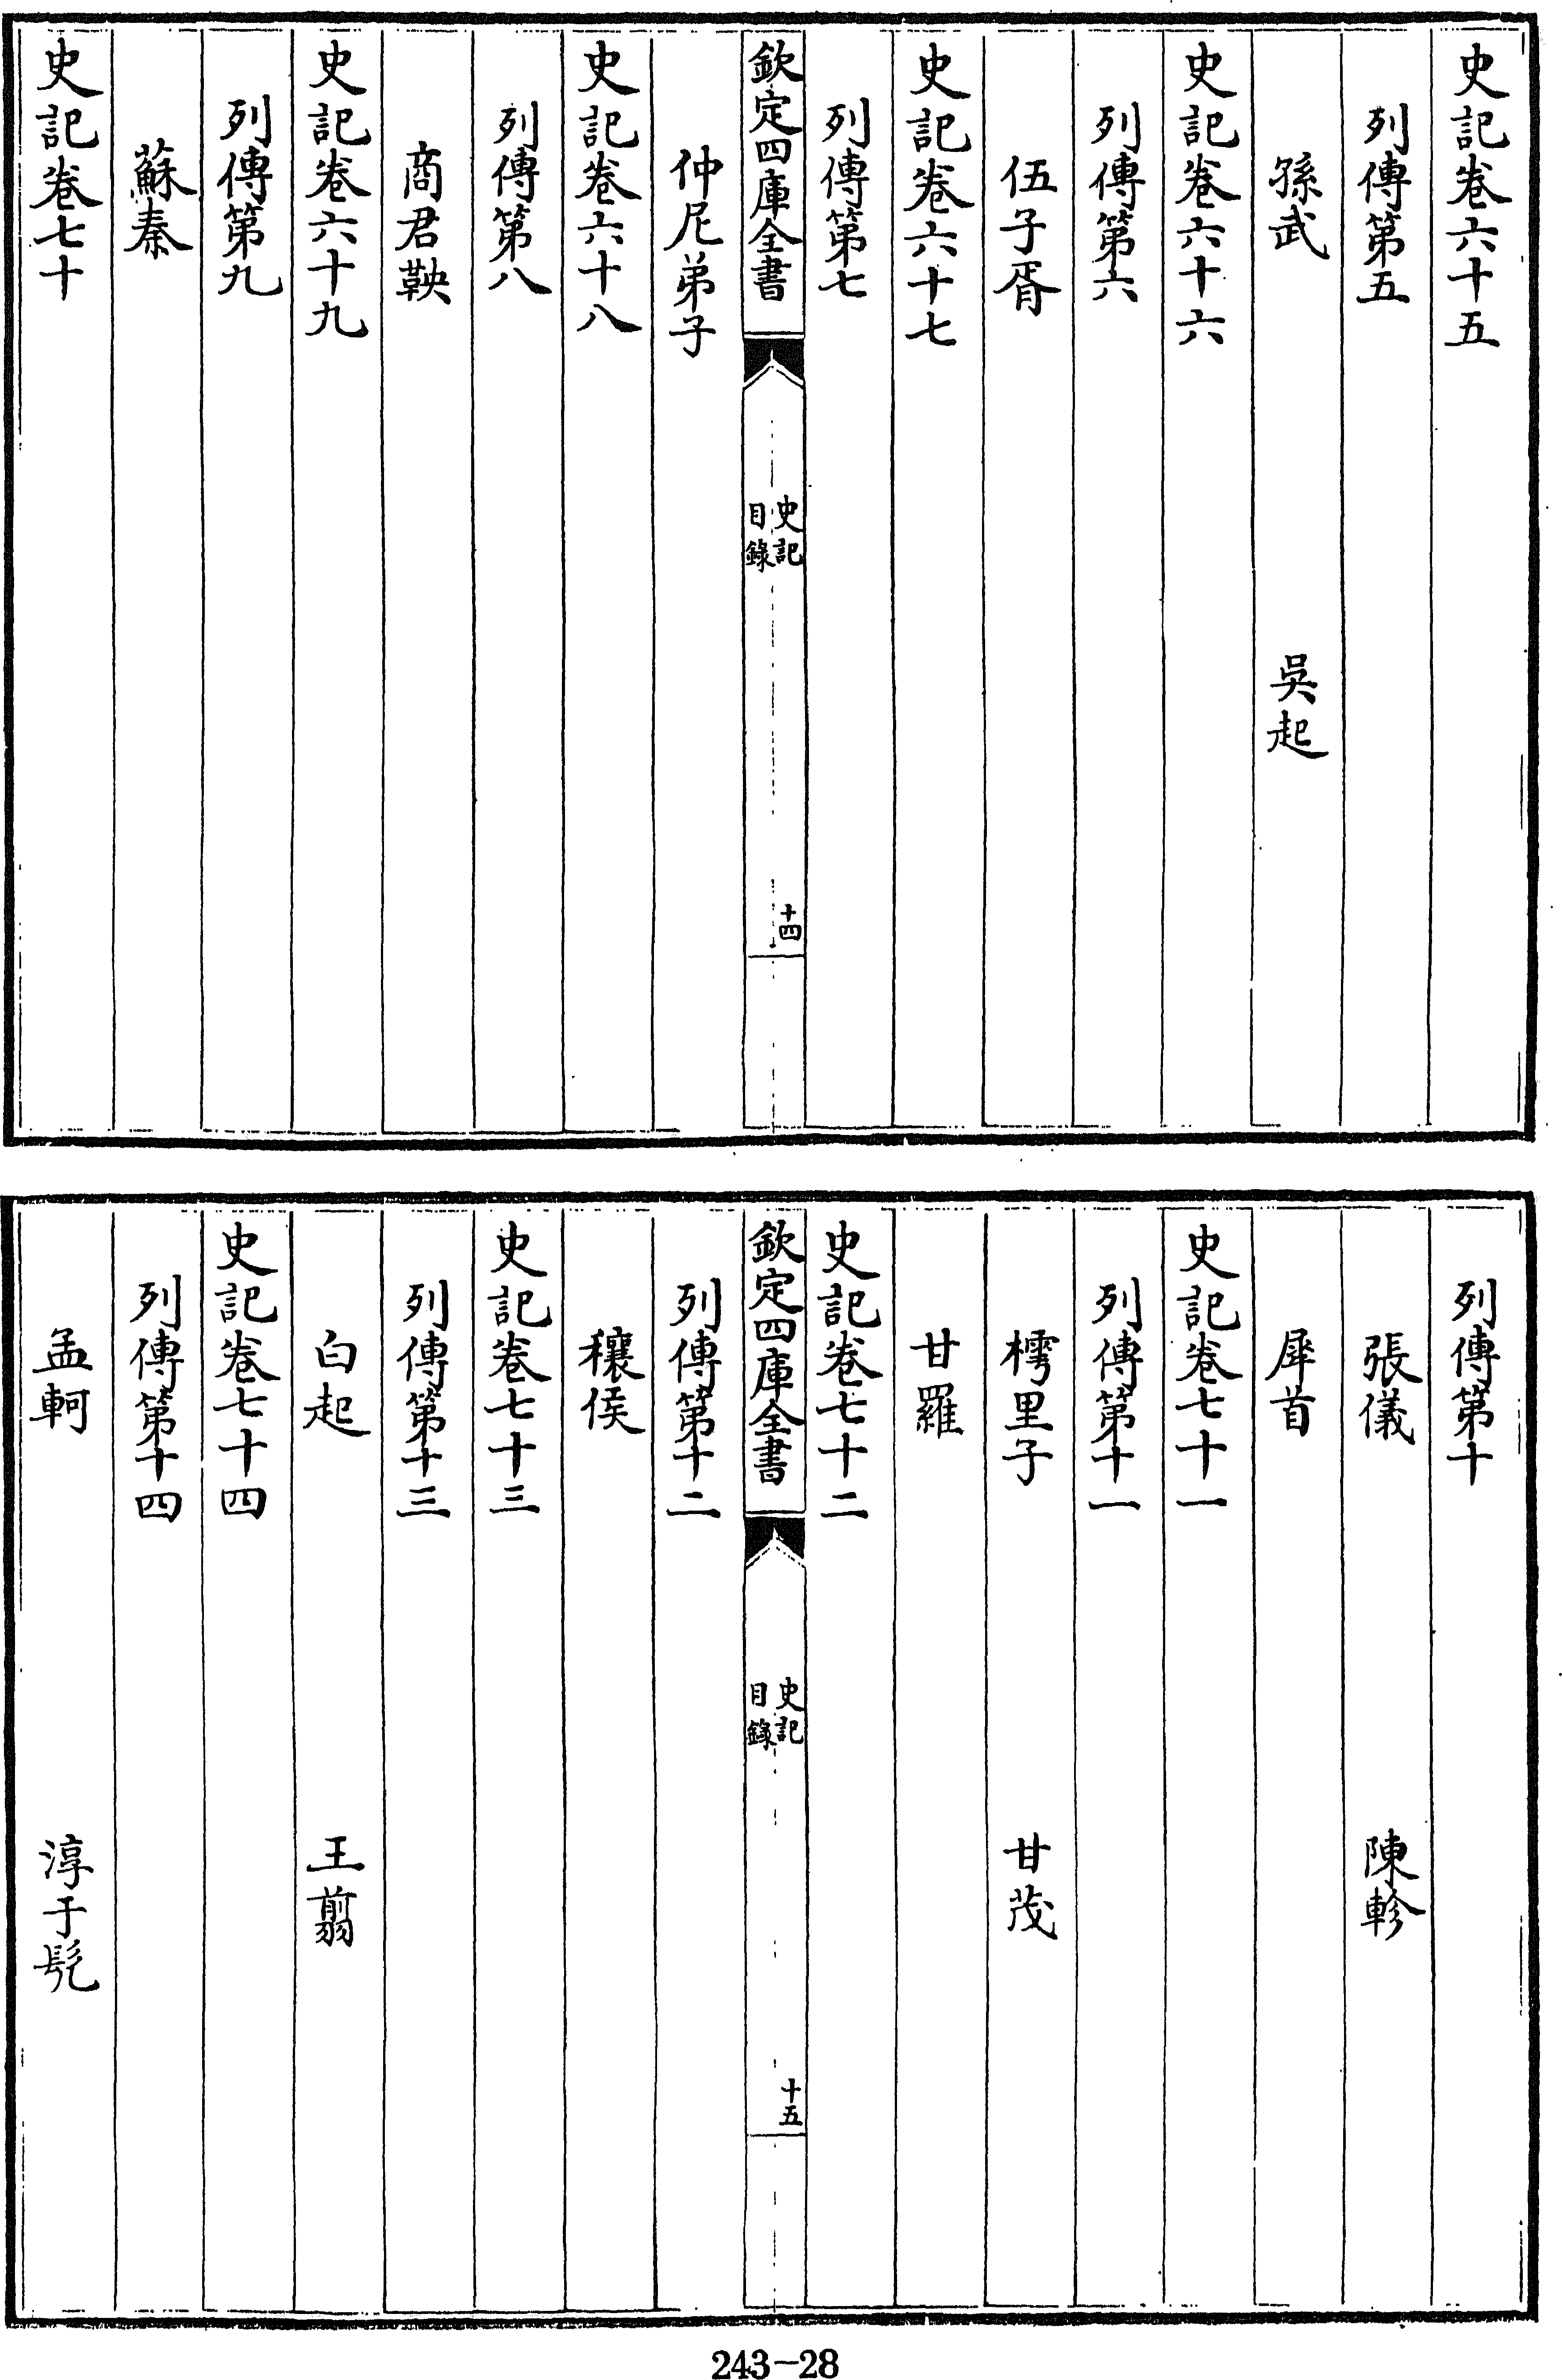 史記卷六十五
列傳第五
孫武 吳起
史記卷六十六
列傳第六
伍子胥
史記卷六十七
列傳第七
欽定四庫全書 史記目錄 十四
仲尼弟子
史記卷六十八
列傳第八
商君鞅
史記卷六十九
列傳第九
蘇秦
史記卷七十
列傳第十
張儀 陳軫
犀首
史記卷七十一
列傳第十一
樗里子 甘茂
甘羅
史記卷七十二
欽定四庫全書 史記目錄 十五
列傳第十二
穰侯
史記卷七十三
列傳第十三
白起 王翦
史記卷七十四
列傳第十四
孟軻 淳于髡
243-28